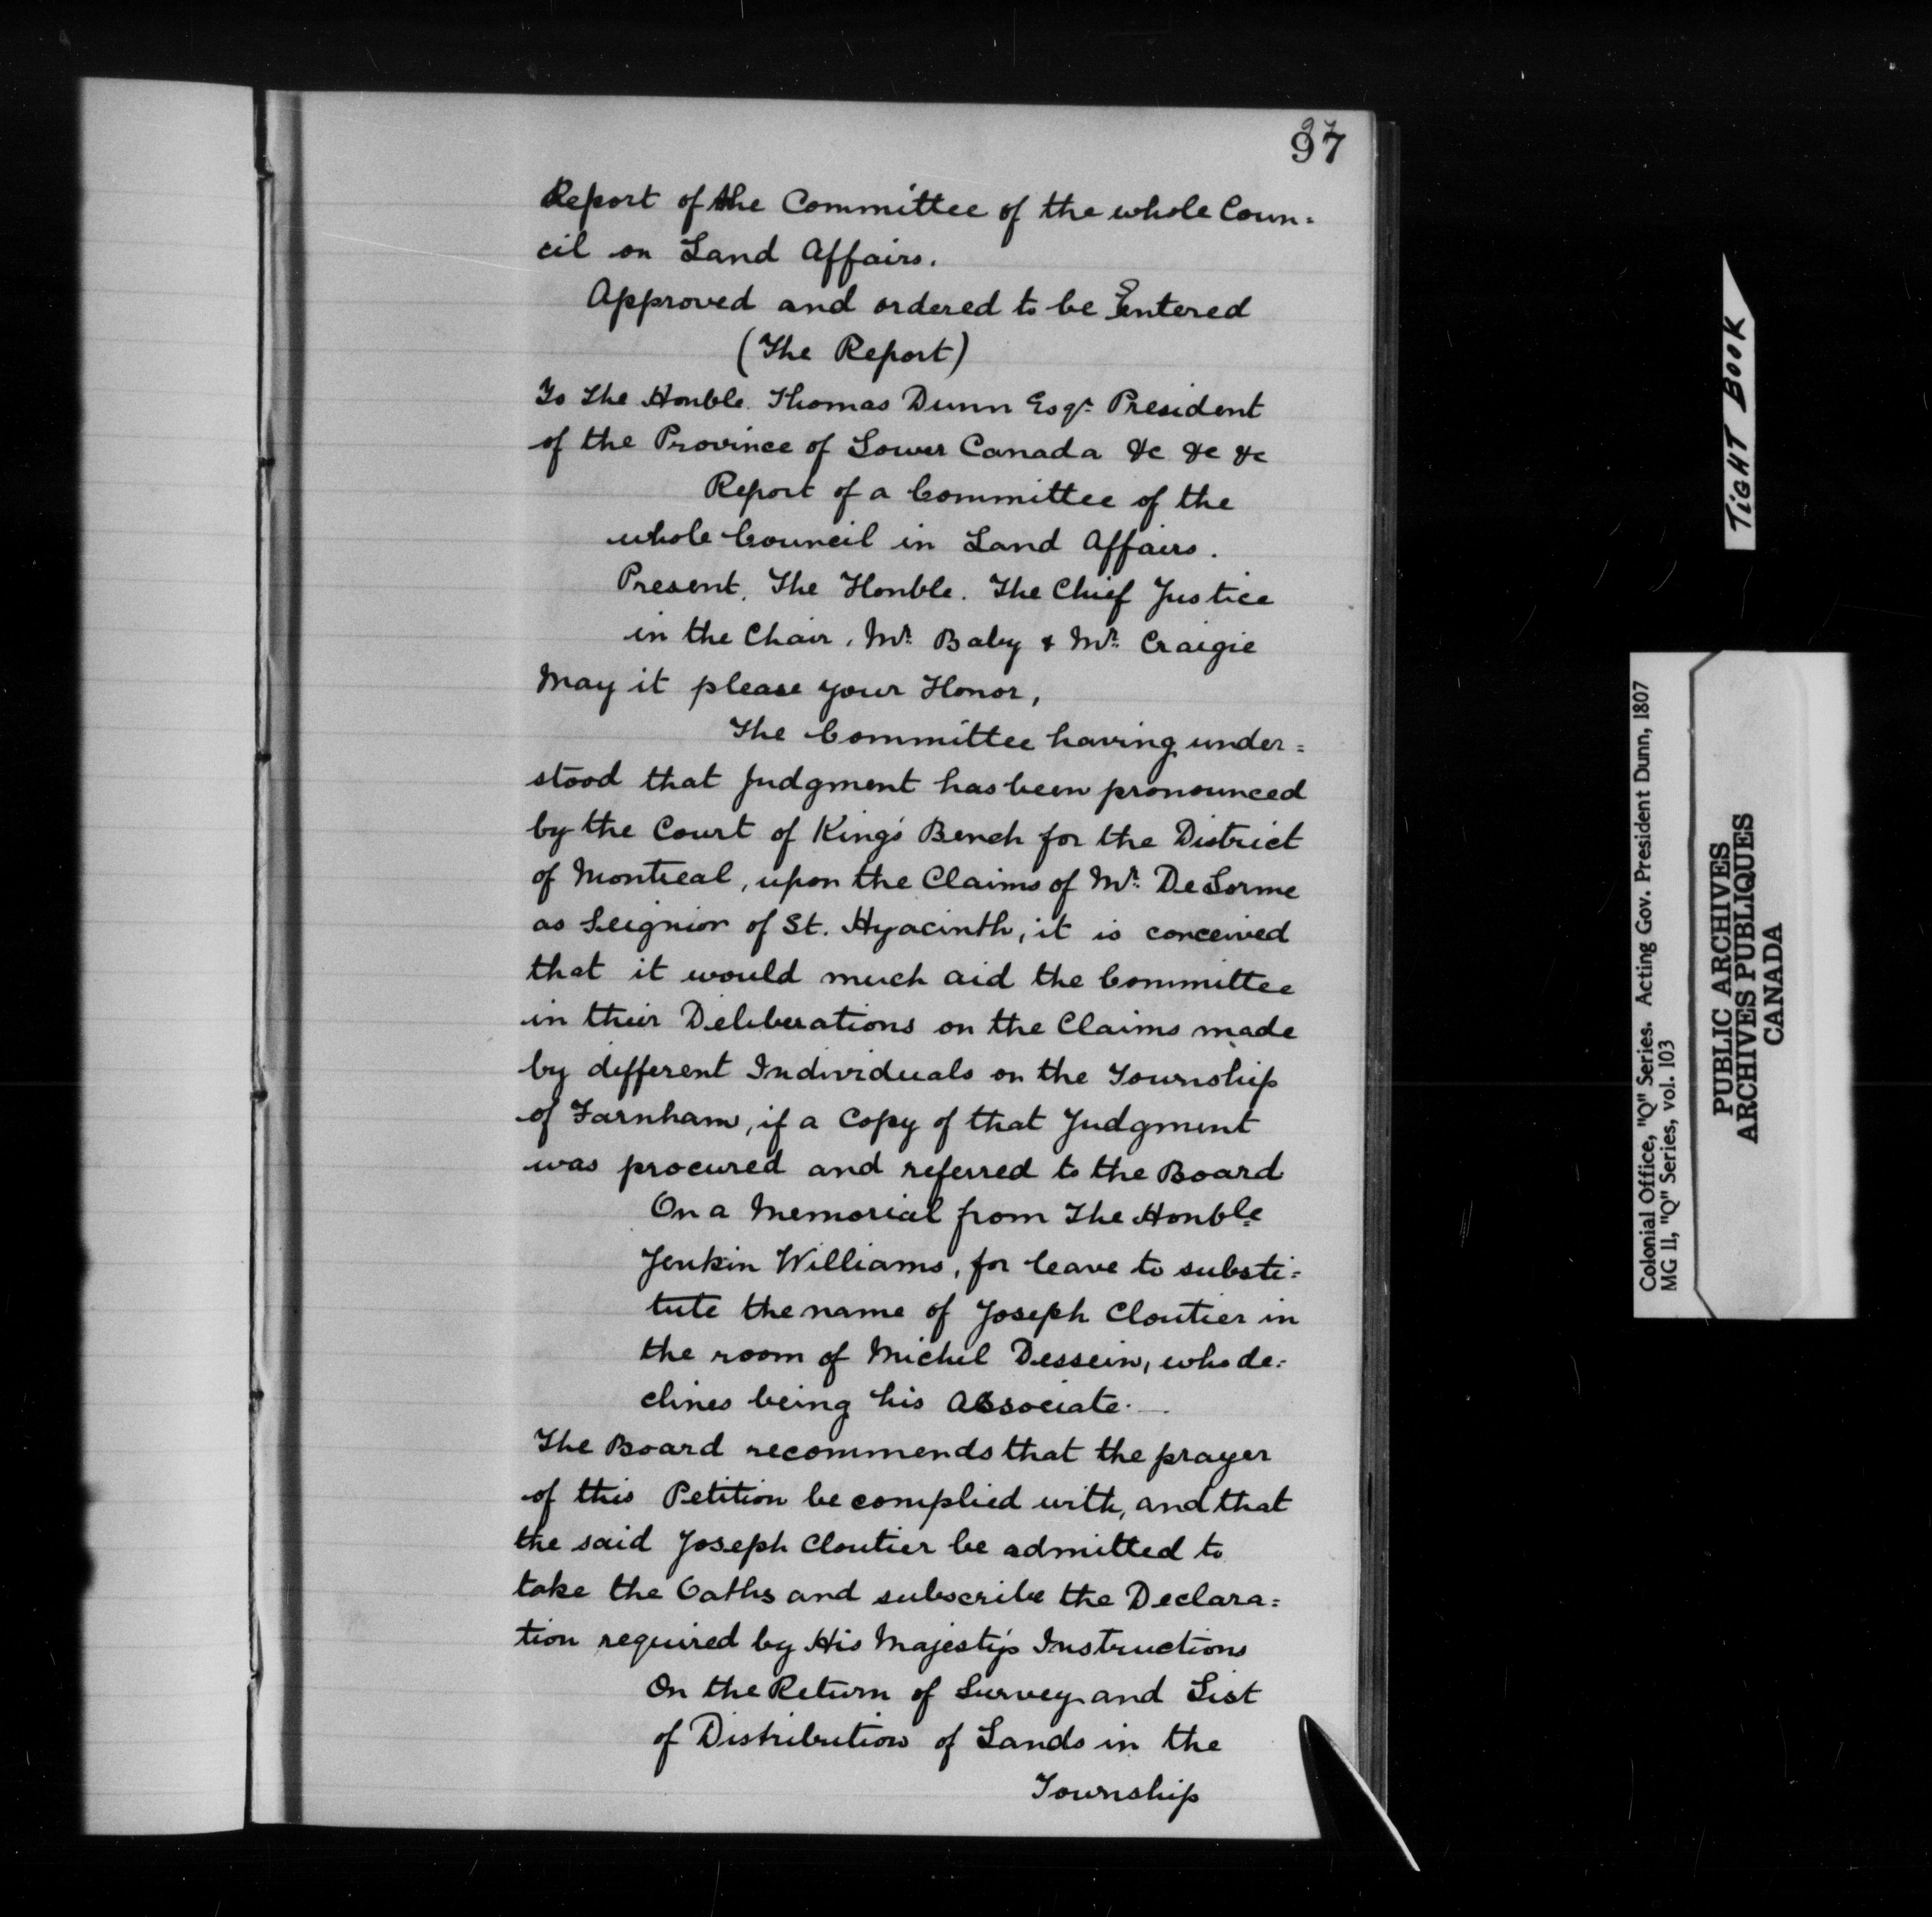 97
97
Report of the Committee of the whole Coun=
cil on Land Affairs.
Approved and ordered to be Entered
(The Report)
To The Honble. Thomas Dunn Esqr. President
of the Province of Lower Canada &c &c &c
Report of a Committee of the
whole Council in Land Affairs.
Present. The Honble. The Chief Justice
in the Chair, Mr. Baby & Mr. Craigie
May it please your Honor,
The Committee having under=
stood that Judgment has been pronounced
by the Court of King's Bench for the District
of Montreal, upon the Claims of Mr. DeLorme
as Seignior of St. Hyacinth, it is conceived
that it would much aid the Committee
in their Deliberations on the Claims made
by different Individuals on the Township
of Farnham, if a Copy of that Judgment
was procured and referred to the Board
On a Memorial from The Honble
Jenkin Williams, for leave to substi=
tute the name of Joseph Cloutier in
the room of Michel Dessein, who de=
clines being his Associate.
The Board recommends that the prayer
of this Petition be complied with, and that
the said Joseph Cloutier be admitted to
take the Oaths and subscribe the Declara=
tion required by His Majesty's Instructions
On the Return of Survey and List
of Distribution of Lands in the
Township
TIGHT BOOK
Colonial Office, "Q" Series. Acting Gov. President Dunn, 1807
MG 11, "Q" Series, vol. 103
PUBLIC ARCHIVES
ARCHIVES PUBLIQUES
CANADA